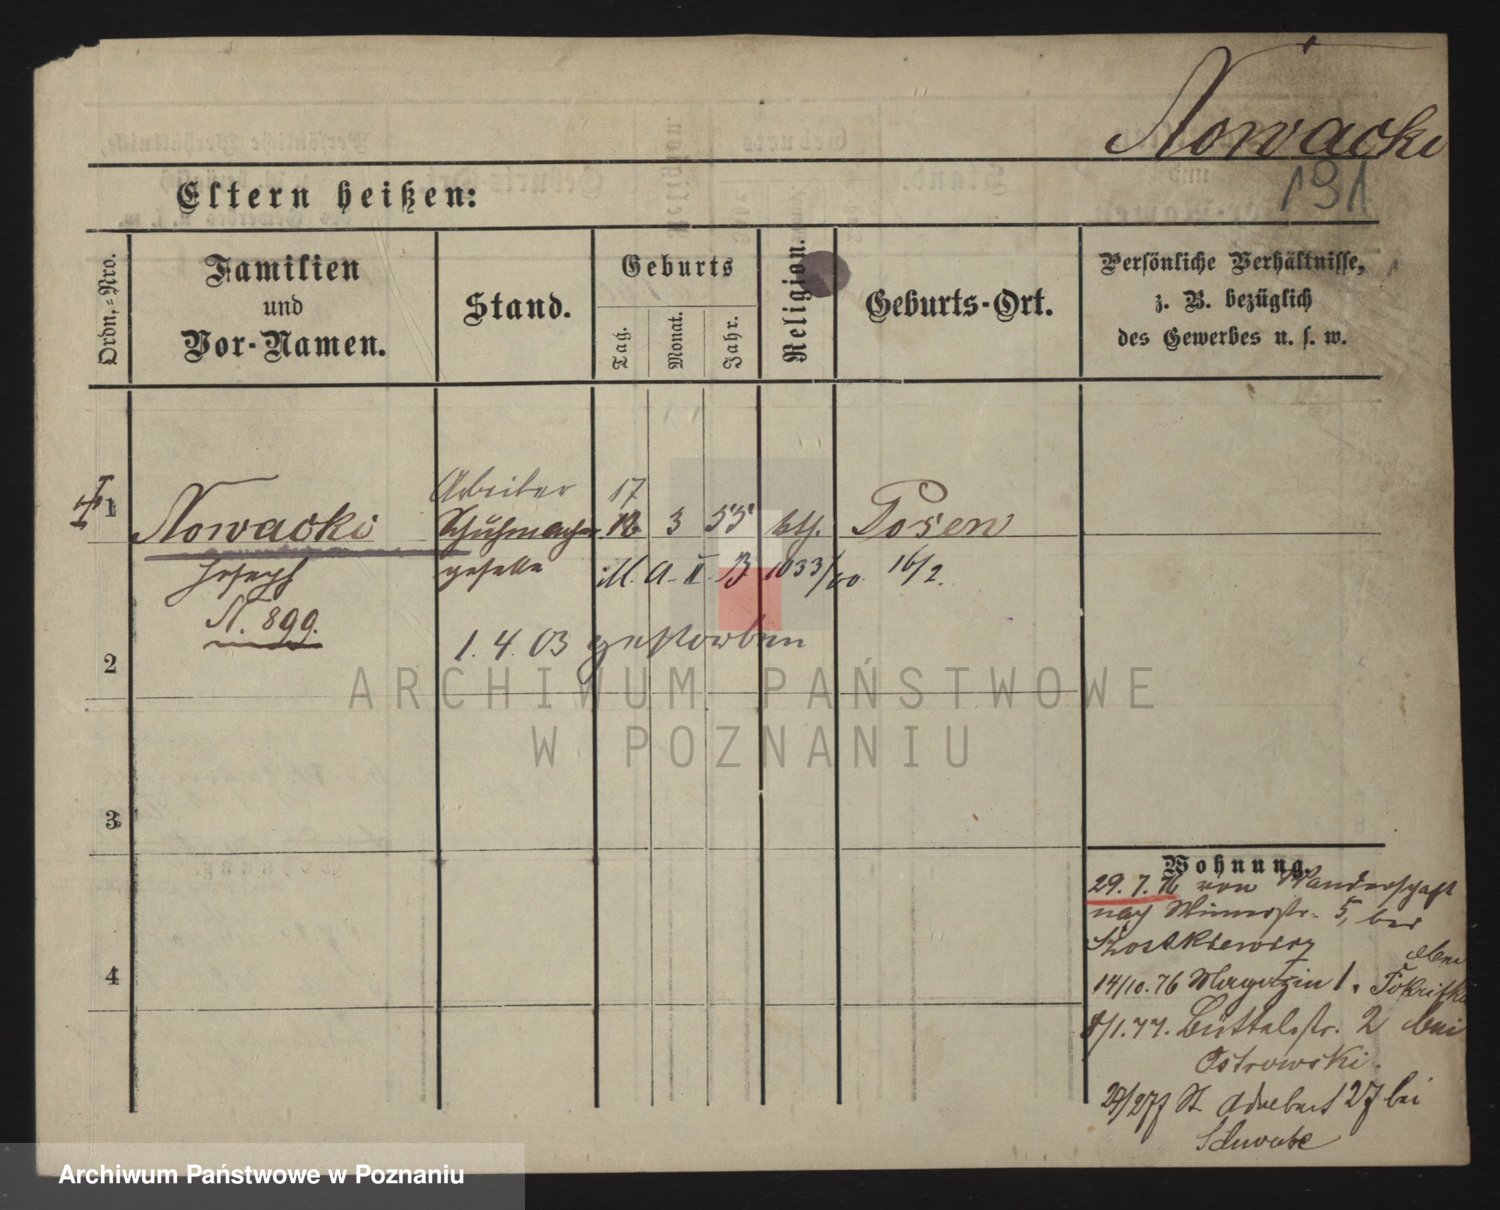 Nowacki
191
Eltern heißen:
Ordn.-Nro.
Familien
und
Vor-Namen.
Stand.
Geburts
Tag.
Monat.
Jahr.
Religion.
Geburts-Ort.
Persönliche Verhältnisse,
z. B. bezüglich
des Gewerbes u. s. w.
1
Nowacki
Joseph
N. 899.
Arbeiter
Schuhmacher
geselle
17
3
55
kth.
Posen
M. A. II B 1033/60 16/2.
1. 4. 03 gestorben
2
3
4
Wohnung.
29. 7. 76 von Wanderschaft
nach 5, bei
Koszkiewicz
14/10. 76 Magazin 1.
8/1. 77. Büttelstr. 2 bei
Ostrowski.
St Adalbert 27 bei
Schwabe
ARCHIWUM PAŃSTWOWE
W POZNANIU
Archiwum Państwowe w Poznaniu